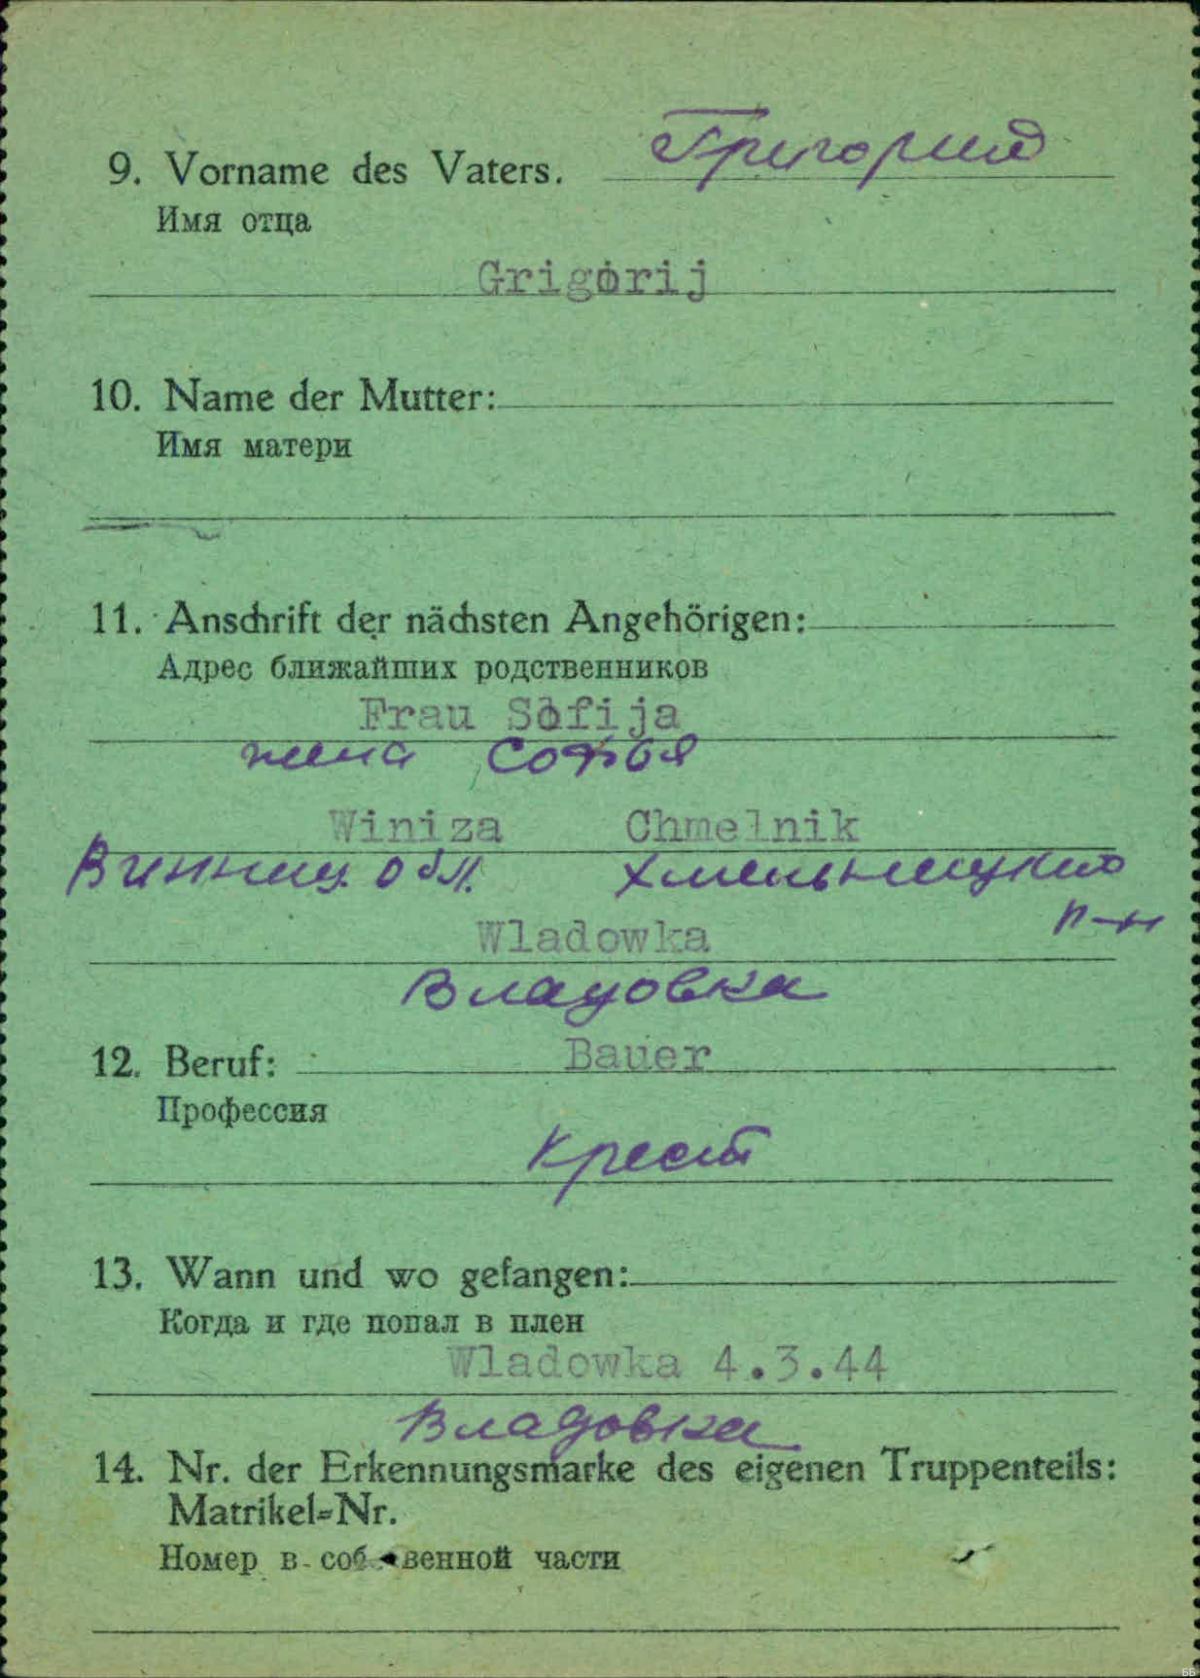 9. Vorname des Vaters. Григорий
Имя отца
Grigorij
10. Name der Mutter:
Имя матери
11. Anschrift der nächsten Angehörigen:
Адрес ближайших родственников
Frau Sofija
жена Софья
Winiza Chmelnik
Винниц. обл. Хмельницкий
р-н
Wladowka
Владовка
12. Beruf: Bauer
Профессия
Крест
13. Wann und wo gefangen:
Когда и где попал в плен
Wladowka 4.3.44
Владовка
14. Nr. der Erkennungsmarke des eigenen Truppenteils:
Matrikel-Nr.
Номер в соб венной части